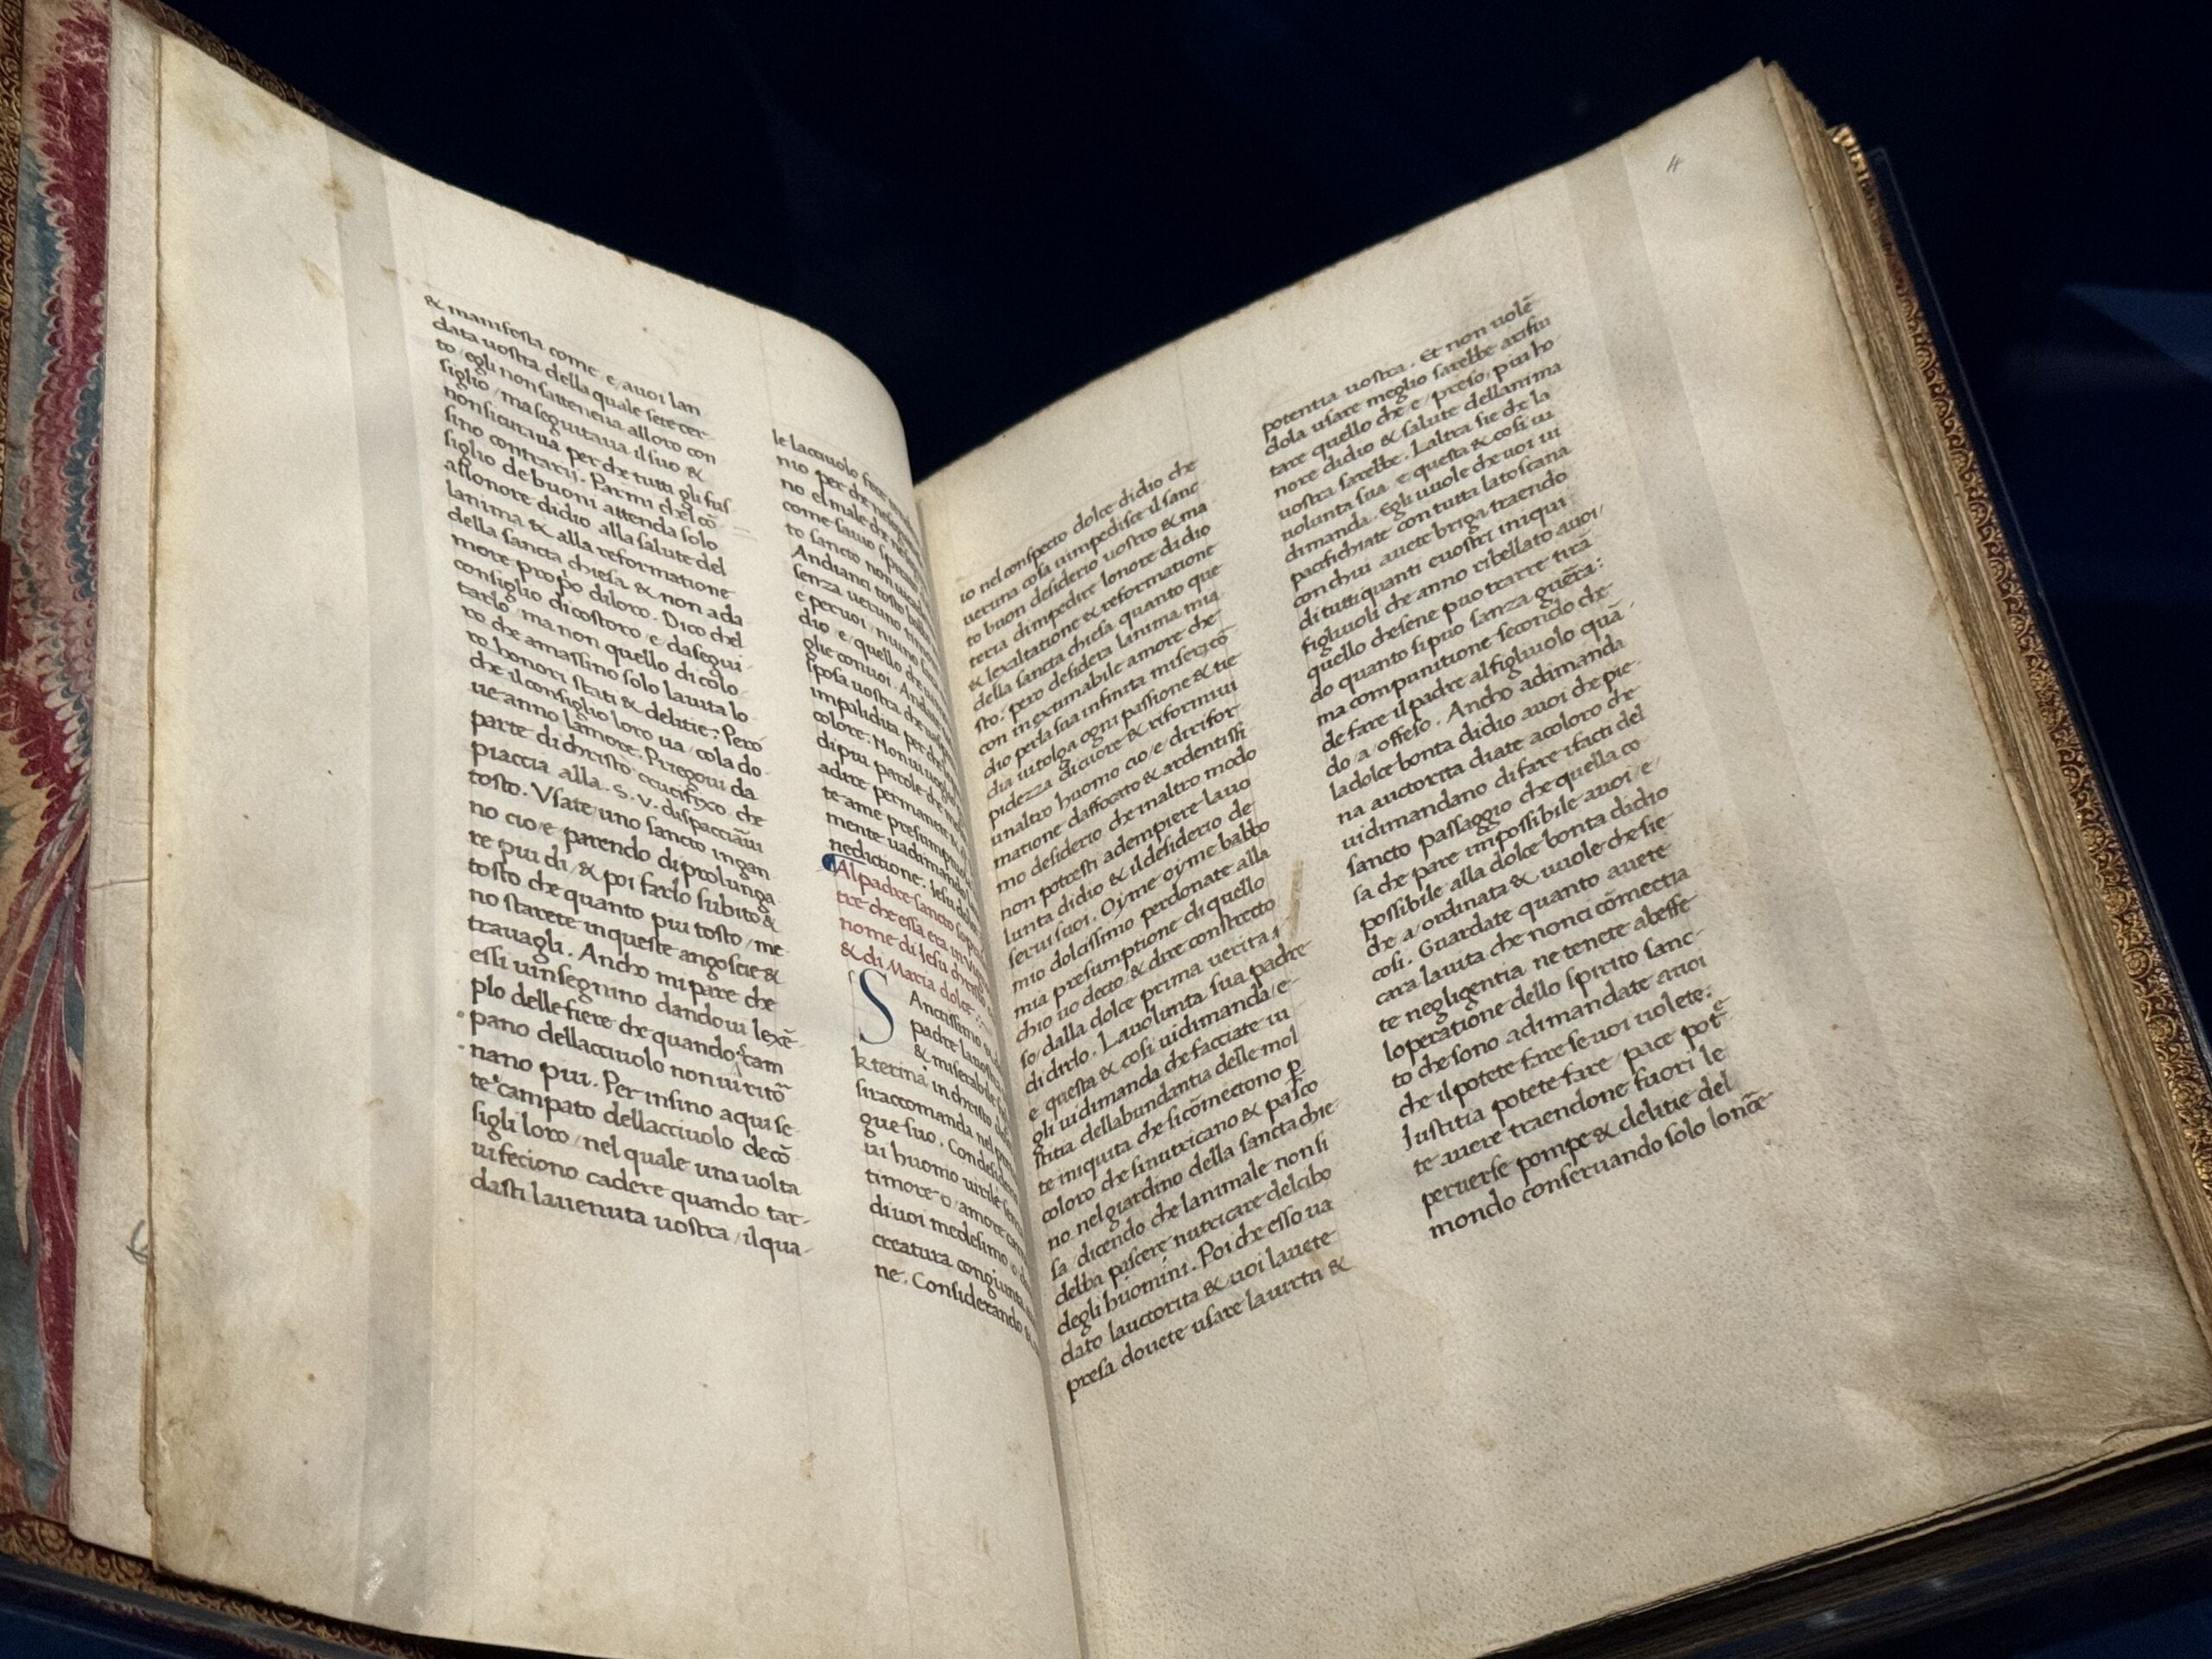 & manifesta come / e / a uoi lan
data uostra della quale sete cer-
to / egli non satteneua alloro con
siglio / ma seguitaua il suo &
non sicuraua per che tutti gli fus
sino contrarij. Parmi chel cō
siglio de buoni attenda solo
allonore didio alla salute del
lanima & alla reformatione
della sancta chiesa & non ada
more propo diloro. Dico chel
consiglio di costoro / e / da segui-
tarlo / ma non quello di colo-
ro che amassino solo la uita lo-
ro honori stati & delitie; Però
che il consiglio loro ua / cola do-
ue anno lamore. Priegoui da
parte di christo crucifixo che
piaccia alla .S. V. dispacciāui
tosto. Vsate uno sancto ingan
no cio / e parendo di prolunga
re piu di / & poi farlo subito &
tosto che quanto piu tosto / me-
no starete in queste angoscie &
trauagli. Ancho mi pare che
essi uinsegnino dandoui lexē-
plo delle fiere che quando cam
pano dellacciuolo non ui ritor
nano piu. Per insino aqui se-
te campato dellacciuolo decō
sigli loro / nel quale una uolta
ui feciono cadere quando tar-
dasti la uenuta uostra / il qua-
le lacciuolo fece
nio per che
no el male che
come sauio
to sancto non
Andianci tosto
senza ueruno
e per uoi / niuno
dio / e / quello che
glie con uoi. Andate
sposa uostra che
impalidita per che
colore. Non ui uoglio
di piu parole che
adire permanete
te ame presumptuosa
mente uadimando
nedictione. Jesu dolce
Al padre sancto sopra
tre che essa era in
nome di Jesu christo
& di Maria dolce
SAnctissimo
padre la uostra
& miserabile
kterina in christo
si raccomanda nel
gue suo. Con desiderio
ui huomo uirile senza
timore o / amore
di uoi medesimo o
creatura congiunta
ne. Considerando
io nel conspecto dolce didio che
ueruna cosa uimpedisce il sanc-
to buon desiderio uostro & ma
teria dimpedire lonore di dio
& lexaltatione & reformatione
della sancta chiesa quanto que
sto: pero desidera lanima mia
con inextimabile amore che
dio per la sua infinita misericō
dia ui tolga ogni passione & tie
pidezza di cuore & riformiui
unaltro huomo cio / e di rifor-
matione daffocato & ardentissi
mo desiderio che in altro modo
non potresti adempiere la uo
lunta didio & il desiderio de
serui suoi. Oyme oyme babbo
mio dolcissimo perdonate alla
mia presumptione di quello
chio uo decto & dire constrecto
so / dalla dolce prima uerita
di dirlo. La uolunta sua padre
e questa & cosi uidimanda / e-
gli ui dimanda che facciate iu
stitia dellabundantia delle mol
te iniquita che si cōmectono p̄
coloro che si nutricano & pasco
no nel giardino della sancta chie-
sa dicendo che lanimale non si
debba pascere nutricare del cibo
degli huomini. Poi che esso ua
dato lauctorita & uoi lauete
presa douete usare la uirtu &
potentia uostra. Et non uolē
dola usare meglio sarebbe arifiu
tare quello che e / preso, piu ho
nore didio & salute dellanima
uostra sarebbe. Laltra sie che la
uolunta sua e questa & cosi ui
dimanda. Egli uuole che uoi ui
pacifichiate con tutta la toscana
con chui auete briga traendo
di tutti quanti e uostri iniqui
figliuoli che anno ribellato auoi /
quello che sene puo trarre tirā
do quanto si puo sanza guerra:
ma com punitione secondo che
de fare il padre al figliuolo quā
do a / offeso. Ancho adimanda
la dolce bonta didio auoi che pie-
na auctorita diate acoloro che
ui dimandano di fare i facti del
sancto passaggio che quella co
sa che pare impossibile auoi / e /
possibile alla dolce bonta didio
che a / ordinata & uuole che sie
cosi. Guardate quanto auete
cara la uita che non ci cōmectia
te negligentia ne tenete abeffe
loperatione dello spirito sanc-
to che sono adimandate auoi
che il potete fare se uoi uolete.
Iustitia potete fare / pace pot
te auere traendone fuori le
peruerse pompe & delitie del
mondo conseruando solo lonōe
4
6